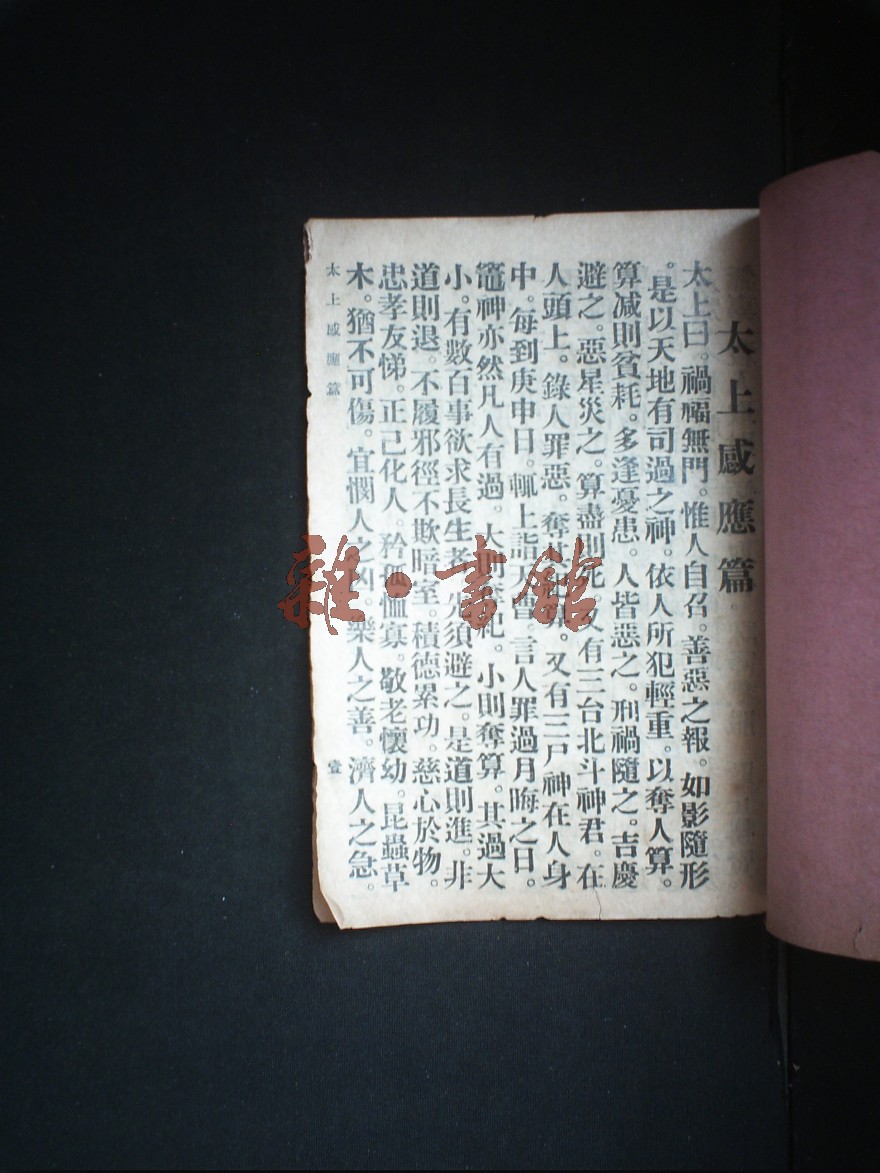 太上感應篇
太上曰。禍福無門。惟人自召。善惡之報。如影隨形
。是以天地有司過之神。依人所犯輕重。以奪人算。
算减則貧耗。多逢憂患。人皆惡之。刑禍隨之。吉慶
避之。惡星災之。算盡則死。又有三台北斗神君。在
人頭上。錄人罪惡。奪其算。又有三尸神在人身
中。每到庚申日。輒上詣天曹。言人罪過月晦之日。
竈神亦然凡人有過。大則奪紀。小則奪算。其過大
小。有數百事欲求長生者先須避之。是道則進。非
道則退。不履邪徑不欺暗室。積德累功。慈心於物。
忠孝友悌。正己化人。矜孤恤寡。敬老懷幼。昆蟲草
木。猶不可傷。宜憫人之凶。樂人之善。濟人之急。
太上感應篇
壹
雜·書館